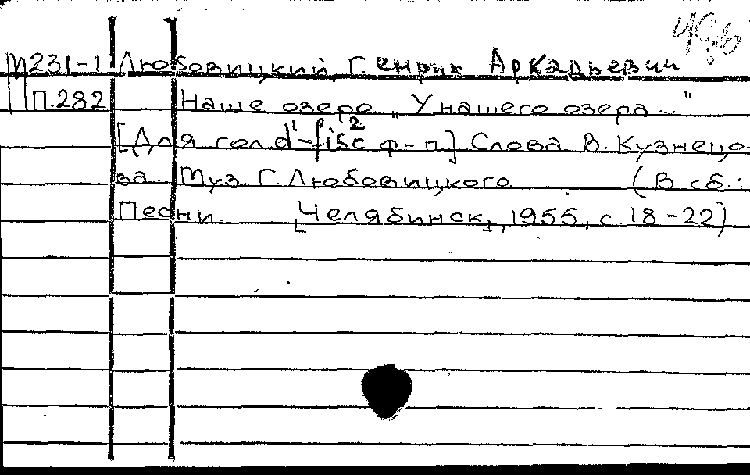 М231-1 Любовицкий Генрих Аркадьевич
П.282 Наше озеро „У нашего озера..."
[Для гол. d'-fisc² ф-п.] Слова В. Кузнецо-
ва Муз Г. Любовицкого (В сб.:
Песни. [Челябинск], 1955, с 18-22)